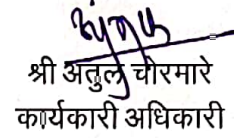 श्री अतुल चोरमारे
कार्यकारी अधिकारी